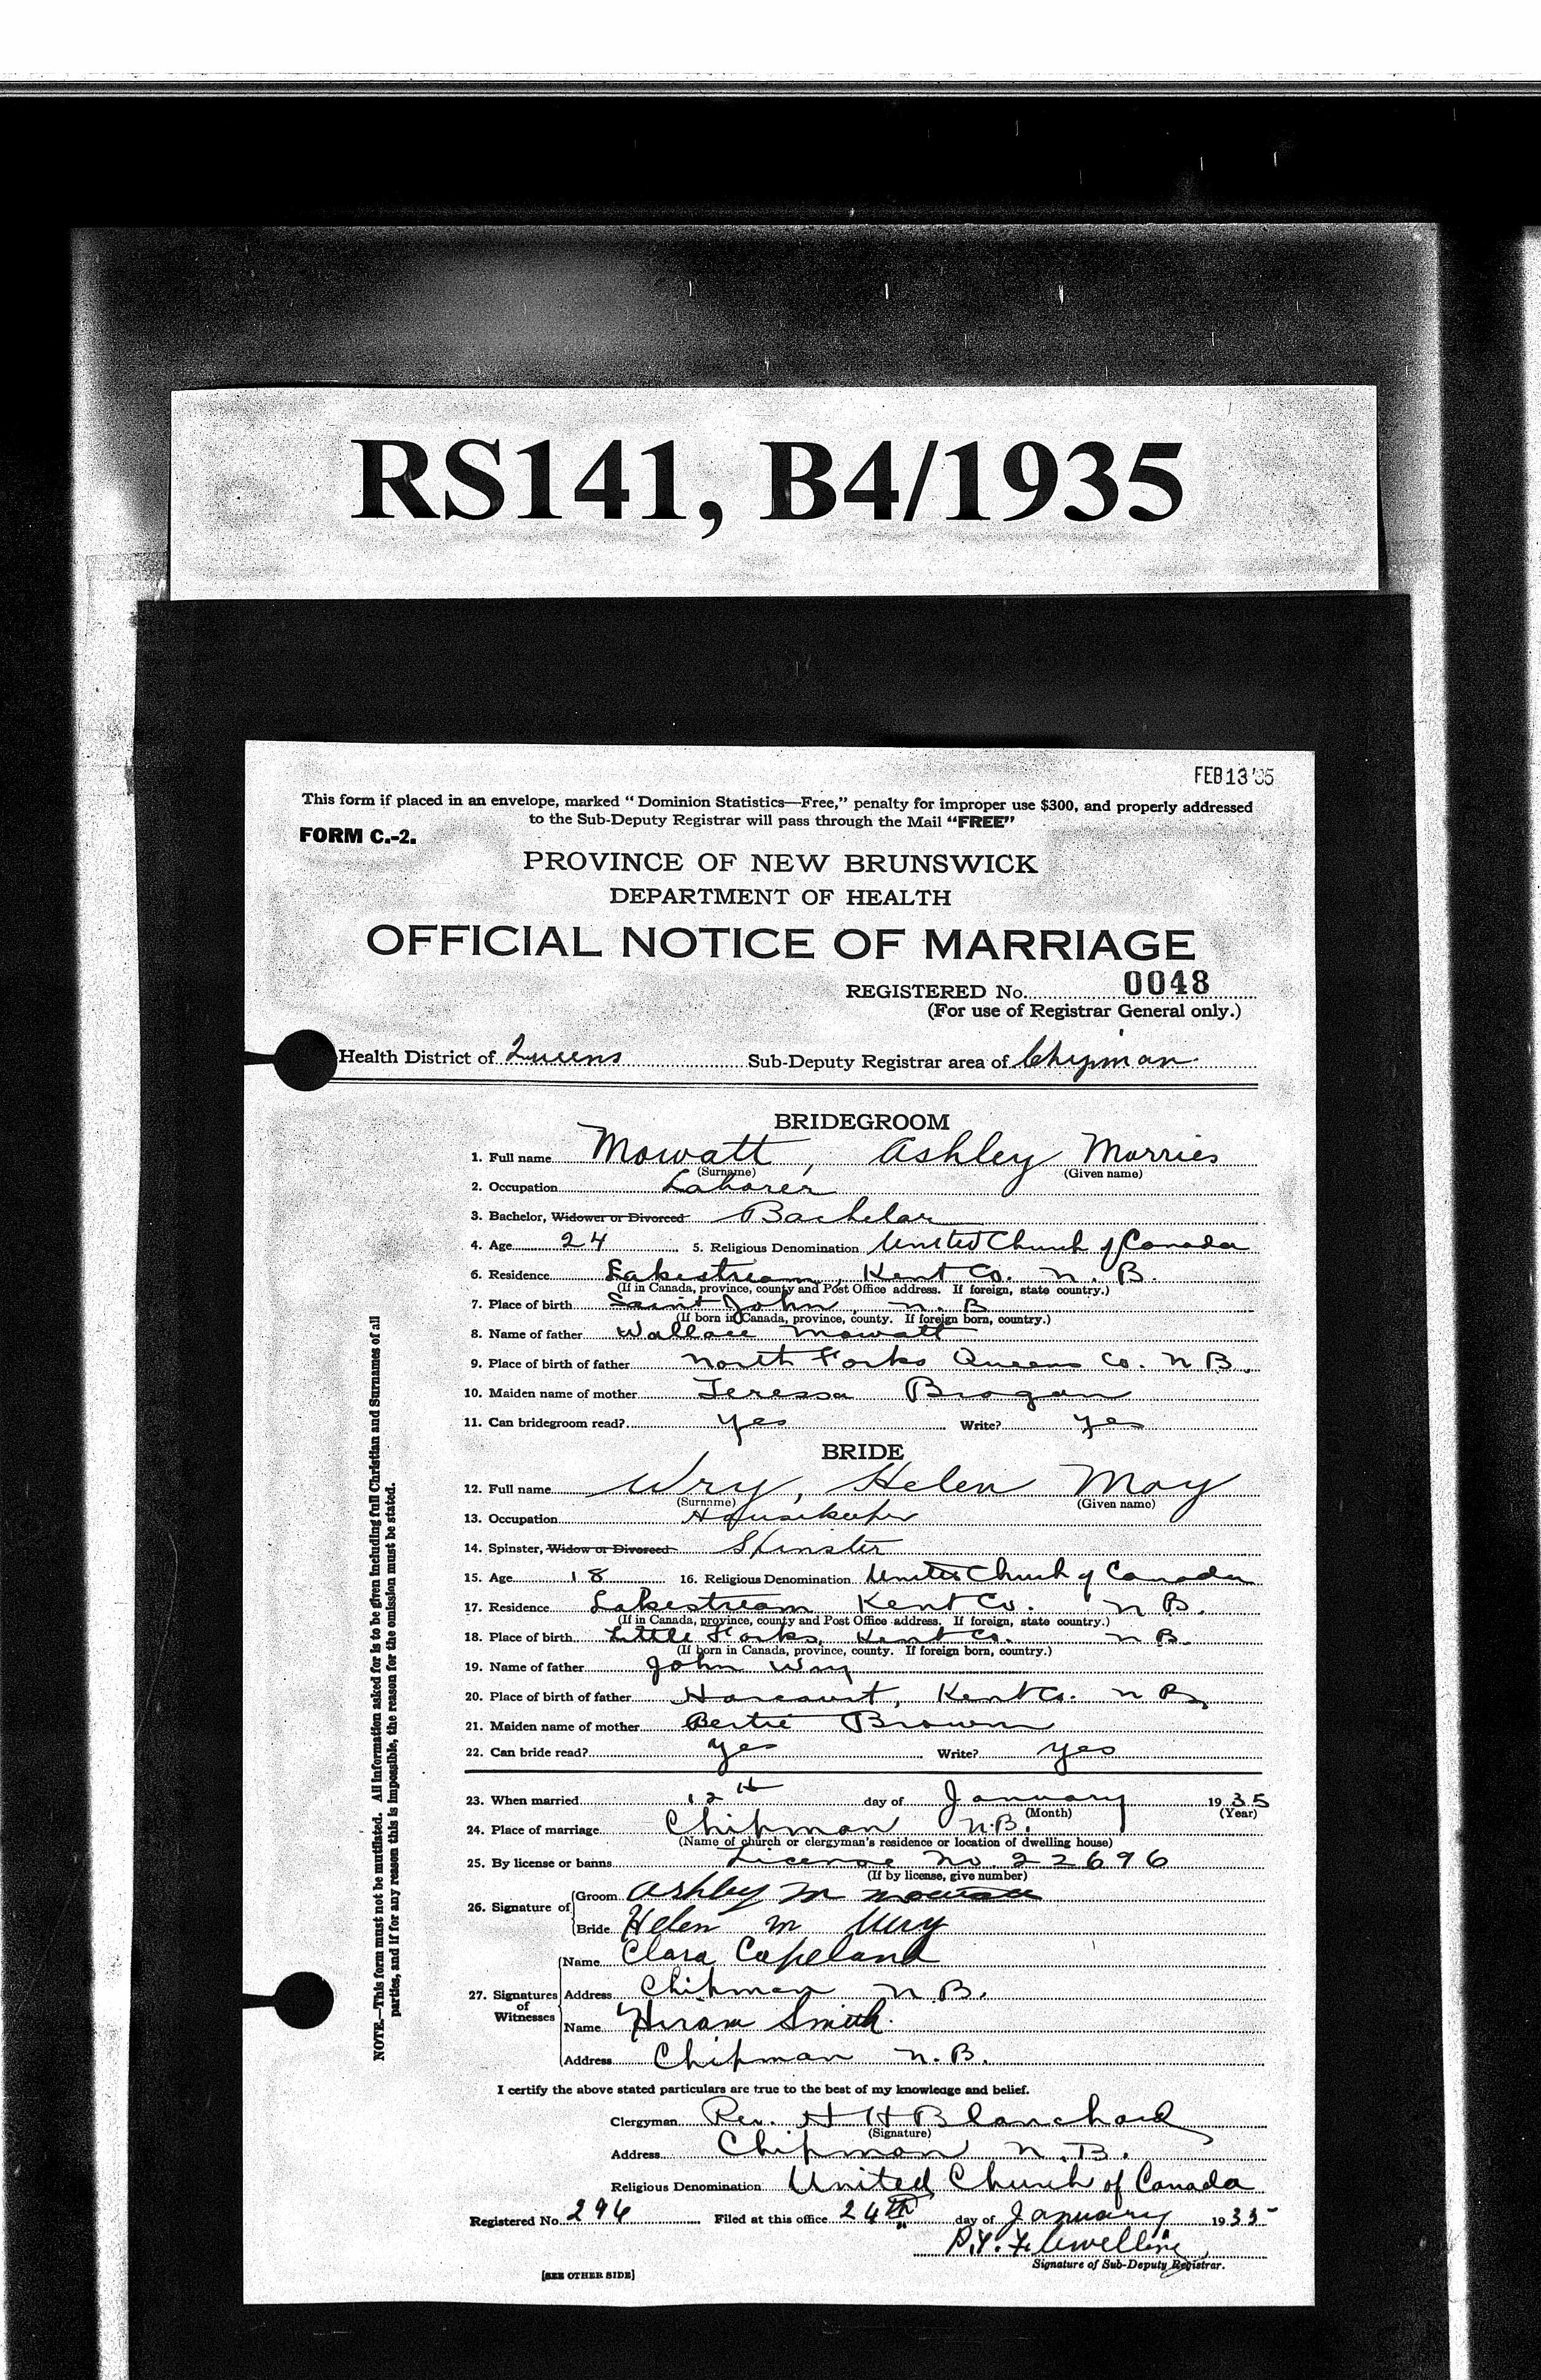 RS141, B4/1935
FEB 13 '35
This form if placed in an envelope, marked “Dominion Statistics—Free,” penalty for improper use $300, and properly addressed
to the Sub-Deputy Registrar will pass through the Mail “FREE”
FORM C.-2.
PROVINCE OF NEW BRUNSWICK
DEPARTMENT OF HEALTH
OFFICIAL NOTICE OF MARRIAGE
REGISTERED No. 0048
(For use of Registrar General only.)
Health District of Queens Sub-Deputy Registrar area of Chipman
BRIDEGROOM
1. Full name Mowatt, Ashley Morries
(Surname) (Given name)
2. Occupation Laborer
3. Bachelor, Widower or Divorced Bachelor
4. Age 24 5. Religious Denomination United Church of Canada
6. Residence Lakestream, Kent Co. N. B.
(If in Canada, province, county and Post Office address. If foreign, state country.)
7. Place of birth Saint John, N. B
(If born in Canada, province, county. If foreign born, country.)
8. Name of father Wallace Mowatt
9. Place of birth of father North Forks Queens Co. N B.
10. Maiden name of mother Teressa Brogan
11. Can bridegroom read? Yes Write? Yes
BRIDE
12. Full name Wry, Helen May
(Surname) (Given name)
13. Occupation Housekeeper
14. Spinster, Widow or Divorced Spinster
15. Age 18 16. Religious Denomination United Church of Canada
17. Residence Lakestream Kent Co. N B.
(If in Canada, province, county and Post Office address. If foreign, state country.)
18. Place of birth Little Forks, Kent Co. N B.
(If born in Canada, province, county. If foreign born, country.)
19. Name of father John Wry
20. Place of birth of father Harcourt, Kent Co. N B,
21. Maiden name of mother Bertie Brown
22. Can bride read? Yes Write? Yes
23. When married 12th day of January 1935
(Month) (Year)
24. Place of marriage Chipman N.B.
(Name of church or clergyman's residence or location of dwelling house)
25. By license or banns License No. 22696
(If by license, give number)
26. Signature of Groom Ashley M Mowatt
Bride Helen M Wry
27. Signatures of Witnesses Name Clara Copeland
Address Chipman N.B.
Name Hiram Smith
Address Chipman N.B.
I certify the above stated particulars are true to the best of my knowledge and belief.
Clergyman Rev. H H Blanchard
(Signature)
Address Chipman N.B.
Religious Denomination United Church of Canada
Registered No. 296 Filed at this office 24th day of January 1935
Flewelling
Signature of Sub-Deputy Registrar.
[SEE OTHER SIDE]
NOTE.—This form must not be mutilated. All information asked for is to be given including full Christian and Surnames of all
parties, and if for any reason this is impossible, the reason for the omission must be stated.